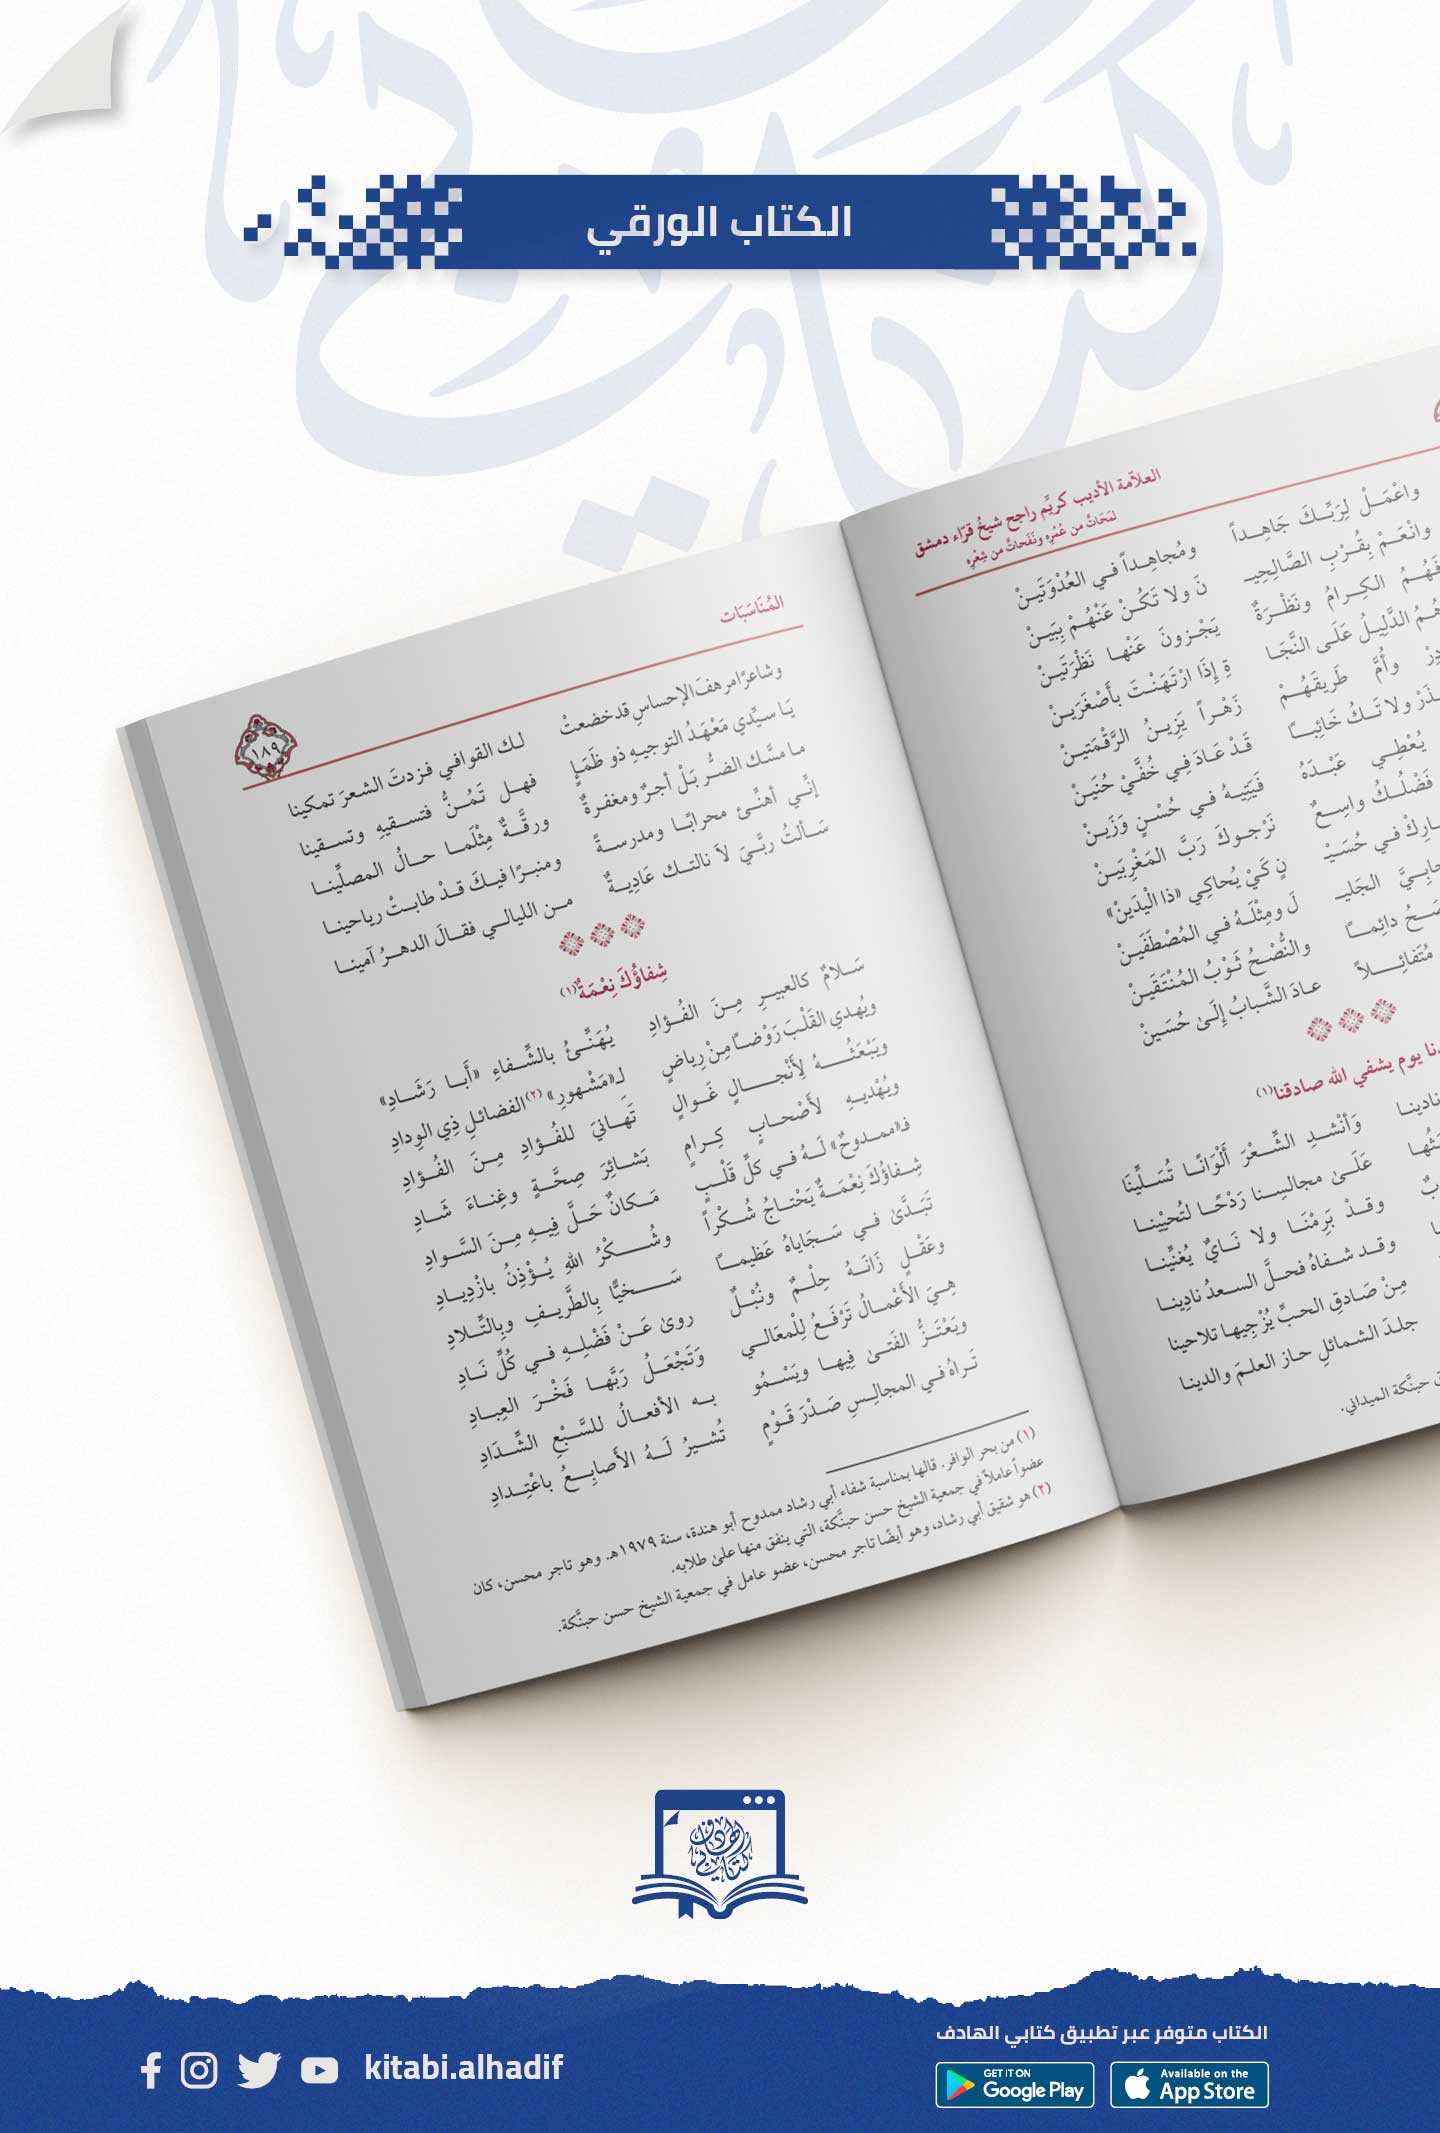 الكتاب الورقي
العلاّمة الأديب كريِّم راجح شيخُ قرّاء دمشق
لمَحَاتٌ من عُمُرِه ونَفَحاتٌ من شِعْرِه
واعْمَـلْ لِرَبِّـكَ جَاهِـداً ومُجاهِـداً فـي العُدْوَتَيـنْ
وانْعَـمْ بِقُـرْبِ الصَّالِحِيـ نَ ولا تَكُـنْ عَنْهُـمْ بِبَيـنْ
فَهُـمُ الكِـرامُ ونَظْـرَةٌ يَجْـزونَ عَنْهـا نَظْرَتَيـنْ
هُمُ الدَّلِيلُ عَلَى النَّجَا ةِ إِذَا ارْتَهَنْـتَ بِأَصْغَرَيـنْ
وأُمَّ طَريقَهُـمْ زَهْـراً يَزِيـنُ الرَّقْمَتيـنْ
ولا تَـكُ خَائِبـًا قَـدْ عَـادَ فِي خُفَّيْ حُنَيـنْ
يُعْطِي عَبْـدَهُ فَيَبِيتُـهُ فـي حُسْـنٍ وَزَيـنْ
فَضْلُـكُ واسِـعٌ نَرْجـوكَ رَبَّ المَغْرِبَيـنْ
في حُسَـيْـ نٍ كَيْ يُحاكِي «ذا اليْدَينْ»
الجَليـ لَ ومِثْلَـهُ فـي المُصْطَفَيـنْ
دائِمـًا والنُّصْـحُ ثَـوْبُ المُنْتَقَيـنْ
مُتَفائِـلاً عـادَ الشَّبـابُ إِلَىٰ حُسَيـنْ
يوم يشفي الله صادقنا(١)
نادينـا وَأنْشـدِ الشِّـعْرَ أَلْوَانًـا تُسَـلِّينَا
عَلَـىٰ مجالسِـنا رَدْحًـا لتُحيينـا
وقـدْ بَرِمْنَـا ولا نَـايٌ يُغنِّينـا
وقـد شـفاهُ فحـلَّ السـعدُ نادِينـا
مِنْ صَـادقِ الحـبِّ يُزْجيهـا تلاحينـا
جلـدَ الشـمائلِ حـاز العلـمَ والدينـا
حبنَّكة الميداني.
المُنَاسَبَات
١٨٩
وشاعرًا مرهفَ الإحساسِ قد خضعتْ لـك القوافي فـزدتَ الشعـرَ تمكينا
يَـا سـيِّدي مَعْهَـدُ التوجيـهِ ذو ظَمَـإٍ فهـل تَمُـنُّ فتسـقيهِ وتسـقينا
مـا مسَّـك الضـرُّ بَـلْ أجـرٌ ومغفـرةٌ ورقَّـةٌ مِثْلَمـا حـالُ المصلِّينـا
إنِّـي أهنِّـئ محرابًـا ومدرسـةً ومنبـرًا فيـكَ قـدْ طابـتْ رياحينـا
سَـألتُ ربَّـيَ لاَ نالتـك عَاديـةٌ مـن الليالـي فقـالَ الدهـرُ آمينـا
شِفاؤُكَ نِعْمَةٌ(١)
سَـلامٌ كالعبيـرِ مِـنَ الفُـؤادِ يُهَنِّـئُ بالشِّـفاءِ «أَبـا رَشَـادِ»
ويُهدي القَلْبَ رَوْضـًا مِنْ رِياضٍ لِـ«مَشْهورِ»(٢) الفضائلِ ذِي الوِدادِ
ويَبْعَثُـهُ لِأَنْجـالٍ غَـوالٍ تَهـانيَ للفُـؤادِ مِـنَ الفُـؤادِ
ويُهْديـهِ لأَصْحـابٍ كِـرامٍ بَشـائِرَ صِحَّـةٍ وغِنـاءَ شَـادِ
فـ«ممـدوحٌ» لَـهُ فـي كلِّ قَلْـبٍ مَـكانٌ حَـلَّ فِيـهِ مِـنَ السَّـوادِ
شِـفاؤُكَ نِعْمَـةٌ يَحْتـاجُ شُـكْراً وشُـكْرُ اللهِ يُـؤْذِنُ بازْدِيـادِ
تَبَـدَّىٰ فـي سَـجَاياهُ عَظيمـًا سَـخيًّا بِالطَّريـفِ وبِالتِّـلادِ
وعَقْـلٍ زَانَـهُ حِلْـمٌ ونُبْـلٌ روىٰ عَـنْ فَضْلِـهِ فـي كُلِّ نَـادِ
هِـيَ الأَعْمـالُ تَرْفَـعُ لِلْمعَالـي وَتَجْعَـلُ رَبَّهـا فَخْـرَ العِبـادِ
ويَعْتَـزُّ الفَتـىٰ فِيهـا ويَسْـمُو بـه الأفعـالُ للسَّـبْعِ الشِّـدَادِ
تَـراهُ فـي المجالِـسِ صَـدْرَ قَـوْمٍ تُشـيرُ لَـهُ الأَصابِـعُ باعْتِـدادِ
(١) من بحر الوافر. قالها بمناسبة شفاء أبي رشاد ممدوح أبو هندة، سنة ١٩٧٩هـ. وهو تاجر محسن، كان
عضواً عاملاً في جمعية الشيخ حسن حبنَّكة، التي ينفق منها علىٰ طلابه.
(٢) هو شقيق أبي رشاد، وهو أيضًا تاجر محسن، عضو عامل في جمعية الشيخ حسن حبنَّكة.
كتابي الهادف
الكتاب متوفر عبر تطبيق كتابي الهادف
kitabi.alhadif
GET IT ON
Google Play
Available on the
App Store